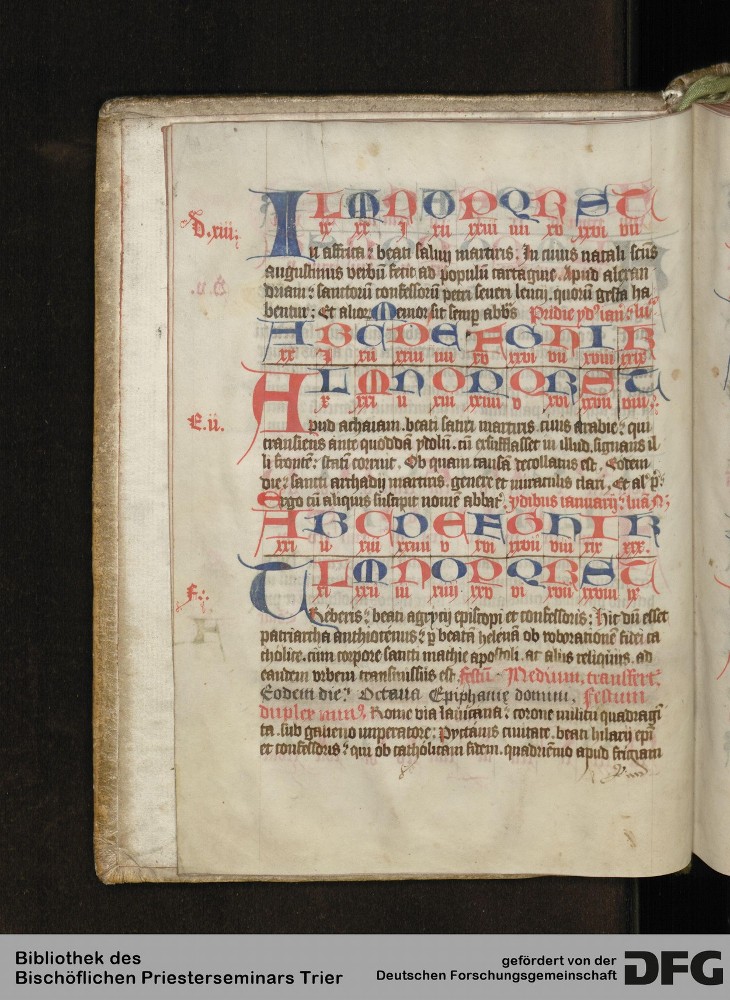 L M N O P Q R S T
D. xiii.
ix xx I xii xxiii iiii xv xxvi vii
In affrica: beati saluij martiris. In cuius natali scūs
augustinus verbū fecit ad populū cartagine. Apud alexan
drian: sanctorū confessorū petri seueri leucij. quorū gesta ha
bentur: Et alior, Memor sit semp abbīs Pridie ydꝰ ian: lu
A B C D E F G H I K
xx I xii xxiii iiii xv xxvi vii xviii xxix
L M N O P Q R S T
x xxi ii xiii xxiiii v xvi xxvii viii
E. ii.
Apud achaiam. beati satiri martiris. cuius arabie: qui
transiens ante quoddā ydolū. cū exsufflasset in illud. signans il
li frontē: statī corruit. Ob quam causā decollatus est. Eodem
die: sancti archadij martiris. genere et miraculis clari. Et al
Ergo cū aliquis suscipit nomē abbat. ydibus ianuarij: luā
A B C D E F G H I K
xxi ii xiii xxiiii v xvi xxvii viii xix xxx.
L M N O P Q R S T
xi xxii iii xiiii xxv vi xvii xxviii ix
F:
Treberis: beati agrycij episcopi et confessoris: hic dū esset
patriarcha anthiocenus: beatā helenā ob roboratiōne fidei ca
tholice. cum corpore sancti mathie apostoli. ac aliis reliquijs. ad
eandem vrbem transmissus est. festū. Medium. transfert
Eodem die: Octaua Epiphanie domini. Festum
duplex Rome via lauicana: corone militū quadragī
ta. sub galieno imperatore: Pyctauis ciuitate. beati hilarij epī
et confessoris: qui ob catholicam fidem. quadriēnio apud frigiam
Bibliothek des
Bischöflichen Priesterseminars Trier
gefördert von der
Deutschen Forschungsgemeinschaft
DFG